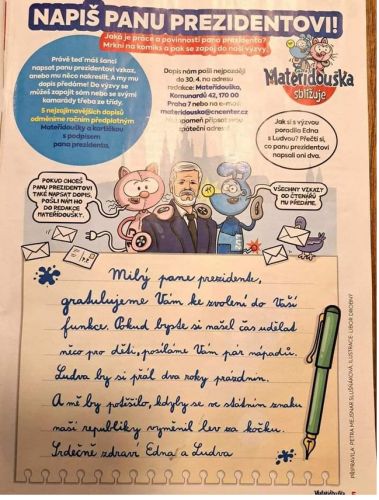 NAPIŠ PANU PREZIDENTOVI!
Jaká je práce a povinnosti pana prezidenta?
Mrkni na komiks a pak se zapoj do naší výzvy.
Mateřídouška
sbližuje
Právě teď máš šanci
napsat panu prezidentovi vzkaz,
anebo mu něco nakreslit. A my mu
dopis předáme! Do výzvy se
můžeš zapojit sám nebo se svými
kamarády třeba ze třídy.
5 nejzajímavějších dopisů
odměníme ročním předplatným
Mateřídoušky a kartičkou
s podpisem
pana prezidenta.
Dopis nám pošli nejpozději
do 30. 4. na adresu
redakce: Mateřídouška,
Komunardů 42, 170 00
Praha 7 nebo na e-mail:
materidouska@cncenter.cz
Nezapomeň připsat svou
zpáteční adresu!
Jak si s výzvou
poradila Edna
s Ludvou? Přečti si,
co panu prezidentovi
napsali oni dva.
POKUD CHCEŠ
PANU PREZIDENTOVI
TAKÉ NAPSAT DOPIS,
POŠLI NÁM HO
DO REDAKCE
MATEŘÍDOUŠKY.
VŠECHNY VZKAZY
OD ČTENÁŘŮ
MU PŘEDÁME.
Milý pane prezidente,
gratulujeme Vám ke zvolení do Vaší
funkce. Pokud byste si našel čas udělat
něco pro děti, posíláme Vám pár nápadů.
Ludva by si přál dva roky prázdnin.
A mě by potěšilo, kdyby se ve státním znaku
naší republiky vyměnil lev za kočku.
Srdečně zdraví Edna a Ludva
PŘIPRAVILA: PETRA MEJSNAR SLUŠŇÁKOVÁ, ILUSTRACE: LIBOR DROBNÝ
Mateřídouška 5